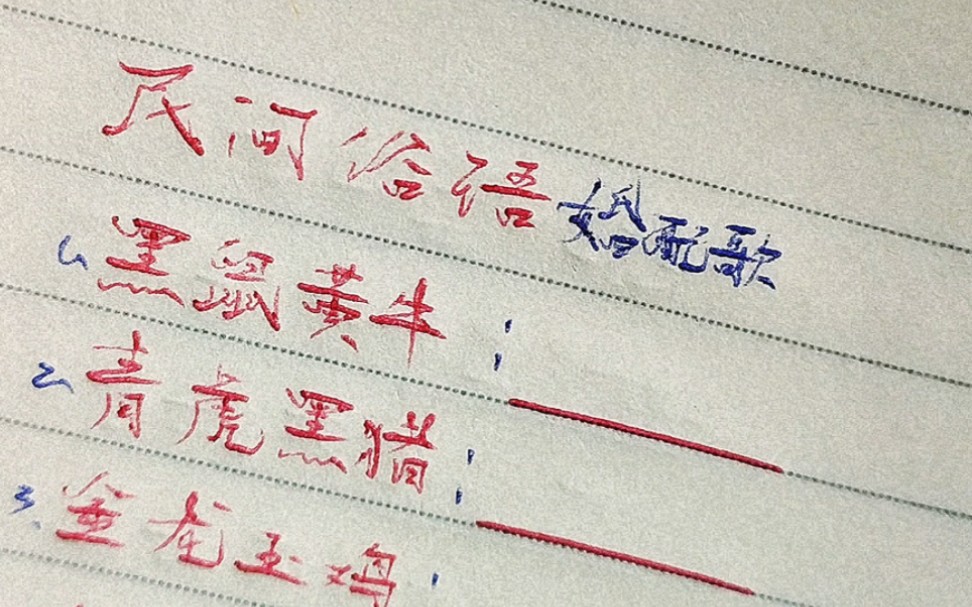 民间俗语婚配歌
1、黑鼠黄牛；
2、青虎黑猪；
3、金龙玉鸡